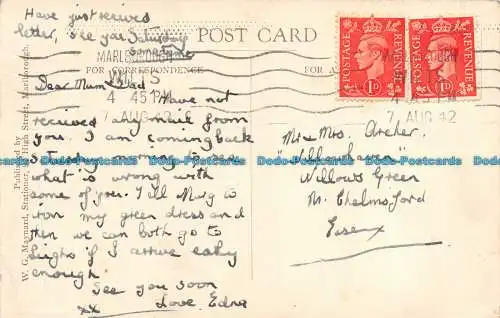 Have just received
letter, see you Saturday
sometime
POST CARD
FOR CORRESPONDENCE
FOR A
MARLBOROUGH
4 45 PM
7 AUG 42
POSTAGE REVENUE
1D
POSTAGE REVENUE
1D
PM
7 AUG 42
Dear Mum & Dad
Have not
received any mail from
you. I am coming back
Saturday
what is wrong with
some of you. Tell Marg to
iron my green dress and
then we can both go to
Leighs if I arrive early
enough.
See you soon
xx Love Edna
Mr & Mrs. Archer
Willows Green
Nr. Chelmsford
Essex
Published by
W. G. Maynard, Stationer, 44 High Street, Marlborough.
Dodo-Postcards Dodo-Postcards Dodo-Postcards Dodo-Postcards